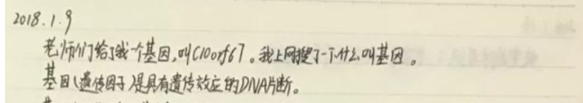 2018.1.9
老师们给了我一个基因,叫C10orf67。我上网搜了一下什么叫基因。
基因(遗传因子)是具有遗传效应的DNA片断。